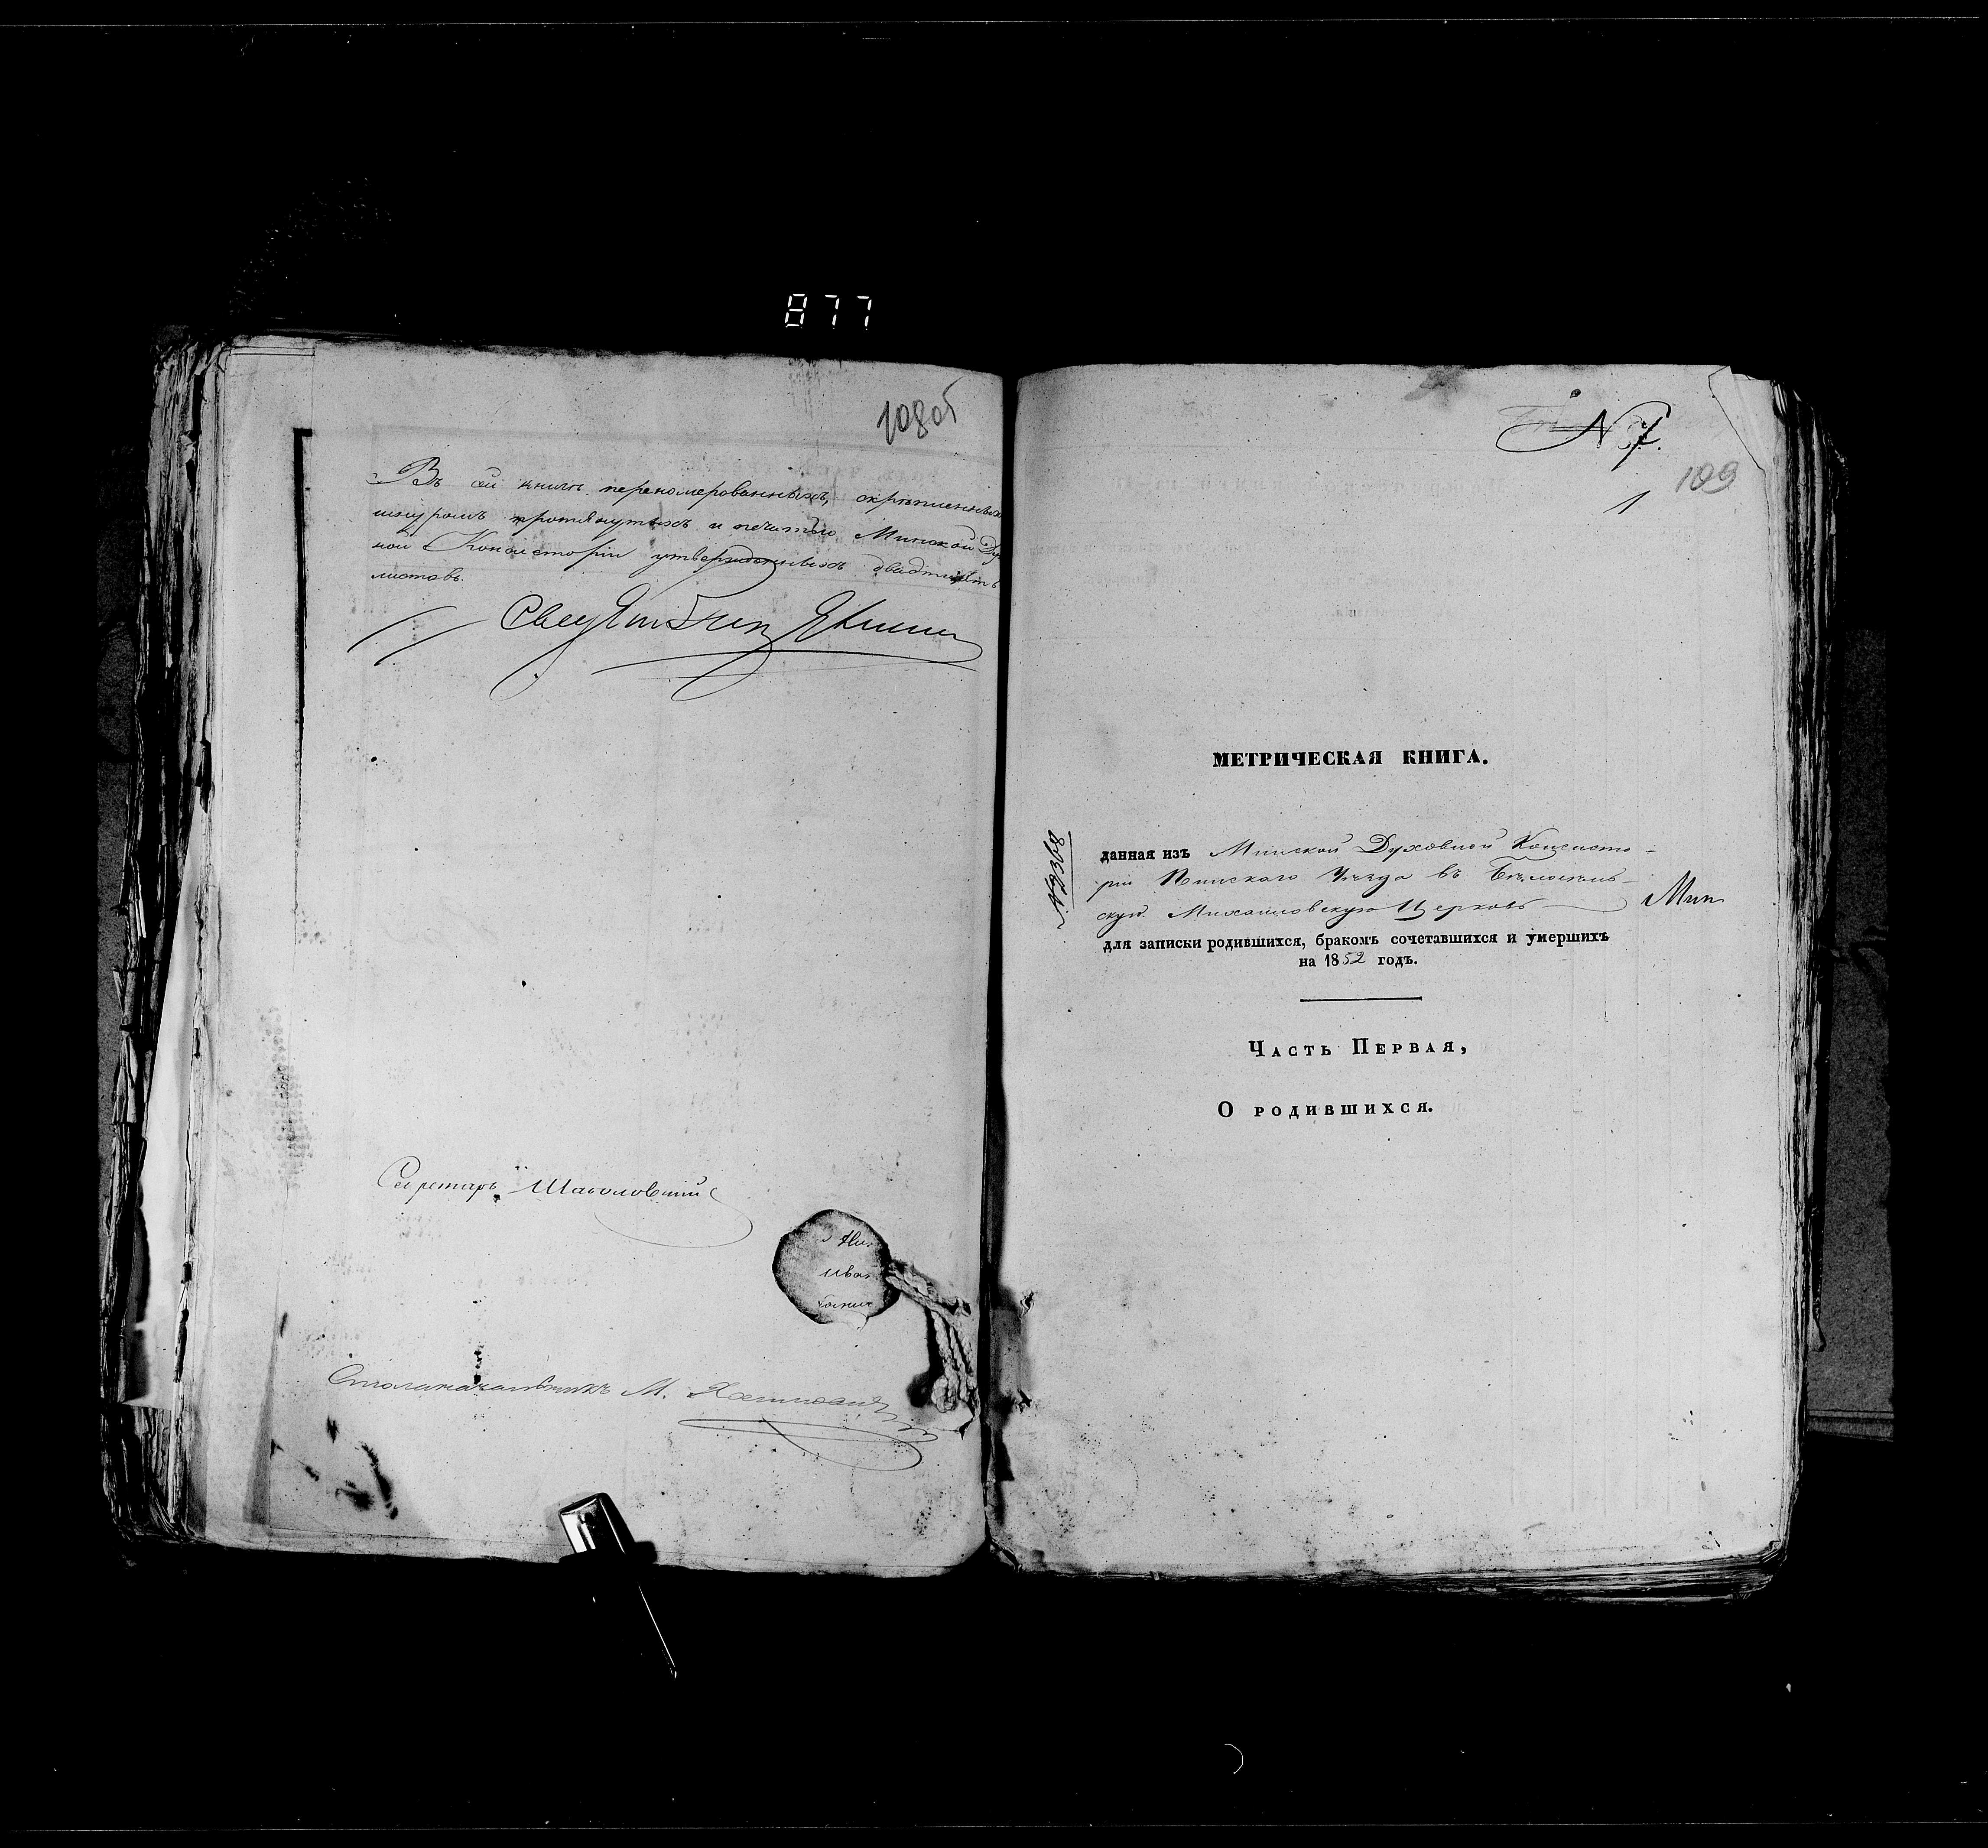 877
108об
Въ сей книгѣ перенумерованныхъ, скрѣпленныхъ
шнуромъ протянутыхъ и печатью Минской Ду
ной Консисторіи утвержденныхъ двадцать
листовъ.
Секретарь
Столоначальникъ М.
N 7.
109
1
МЕТРИЧЕСКАЯ КНИГА.
данная изъ Минской Духовной Консисто-
ріи Пинскаго Уѣзда въ
скую Михайловскую Церковь
Мин
для записки родившихся, бракомъ сочетавшихся и умершихъ
на 1852 годъ.
Часть Первая,
О родившихся.